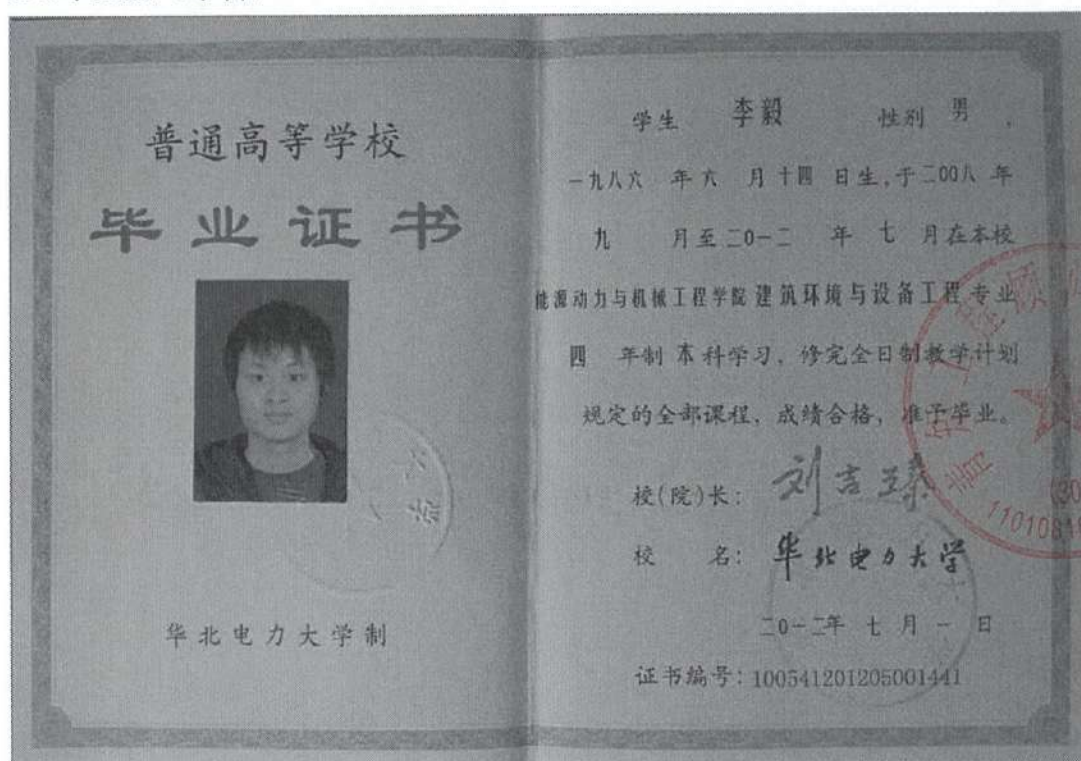 普通高等学校
毕业证书
华北电力大学制
学生 李毅 性别 男，
一九八六 年 六 月 十四 日生，于二00八 年
九 月至 二0一二 年 七 月在本校
能源动力与机械工程学院 建筑环境与设备工程 专业
四 年制 本 科学习，修完全日制教学计划
规定的全部课程，成绩合格，准予毕业。
校(院)长：刘吉臻
校 名：华北电力大学
二0一二年 七 月 一 日
证书编号：100541201205001441